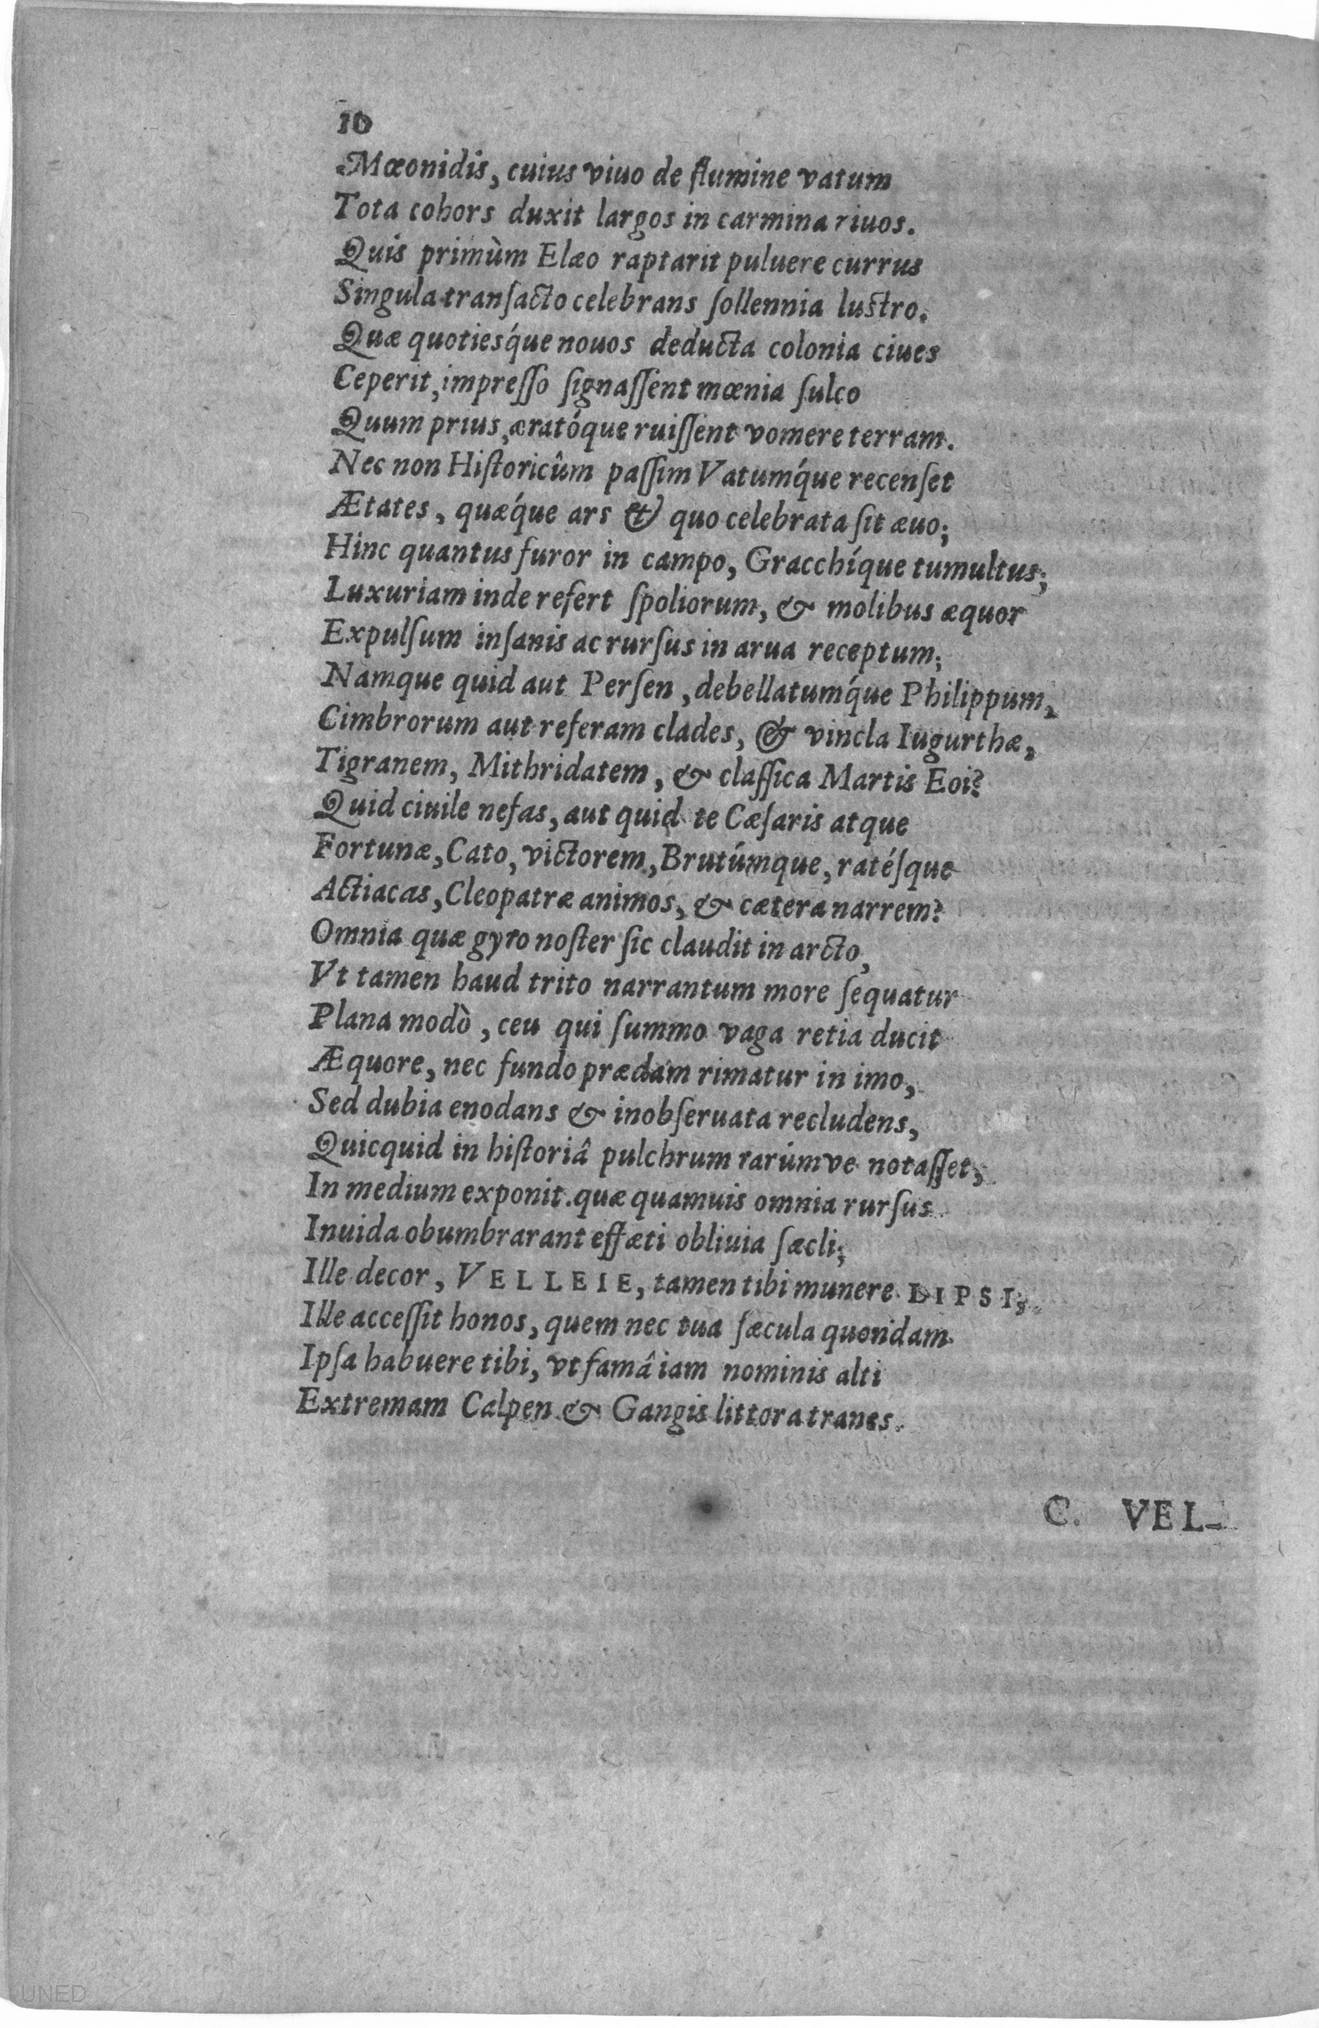 10
Mœonidis, cuius viuo de flumine vatum
Tota cohors duxit largos in carmina riuos.
Quis primùm Elæo raptarit puluere currus
Singula transacto celebrans sollennia lustro.
Quæ quotiesq́ue nouos deducta colonia ciues
Ceperit, impresso signassent mœnia sulco
Quum prius, æratóque ruissent vomere terram.
Nec non Historicûm passim Vatumq́ue recenset
Ætates, quæq́ue ars & quo celebrata sit æuo;
Hinc quantus furor in campo, Gracchíque tumultus;
Luxuriam inde refert spoliorum, & molibus æquor
Expulsum insanis ac rursus in arua receptum;
Namque quid aut Persen, debellatumq́ue Philippum,
Cimbrorum aut referam clades, & vincla Iugurthæ,
Tigranem, Mithridatem, & classica Martis Eoi?
Quid ciuile nefas, aut quid te Cæsaris atque
Fortunæ, Cato, victorem, Brutúmque, ratésque
Actiacas, Cleopatræ animos, & cætera narrem?
Omnia quæ gyro noster sic claudit in arcto,
Vt tamen haud trito narrantum more sequatur
Plana modò, ceu qui summo vaga retia ducit
Æquore, nec fundo prædam rimatur in imo,
Sed dubia enodans & inobseruata recludens,
Quicquid in historiâ pulchrum rarúmve notasset,
In medium exponit. quæ quamuis omnia rursus
Inuida obumbrarant effæti obliuia sæcli;
Ille decor, VELLEIE, tamen tibi munere LIPSI,
Ille accessit honos, quem nec tua sæcula quondam
Ipsa habuere tibi, vt famâ iam nominis alti
Extremam Calpen & Gangis littora tranes.
C. VEL-
UNED